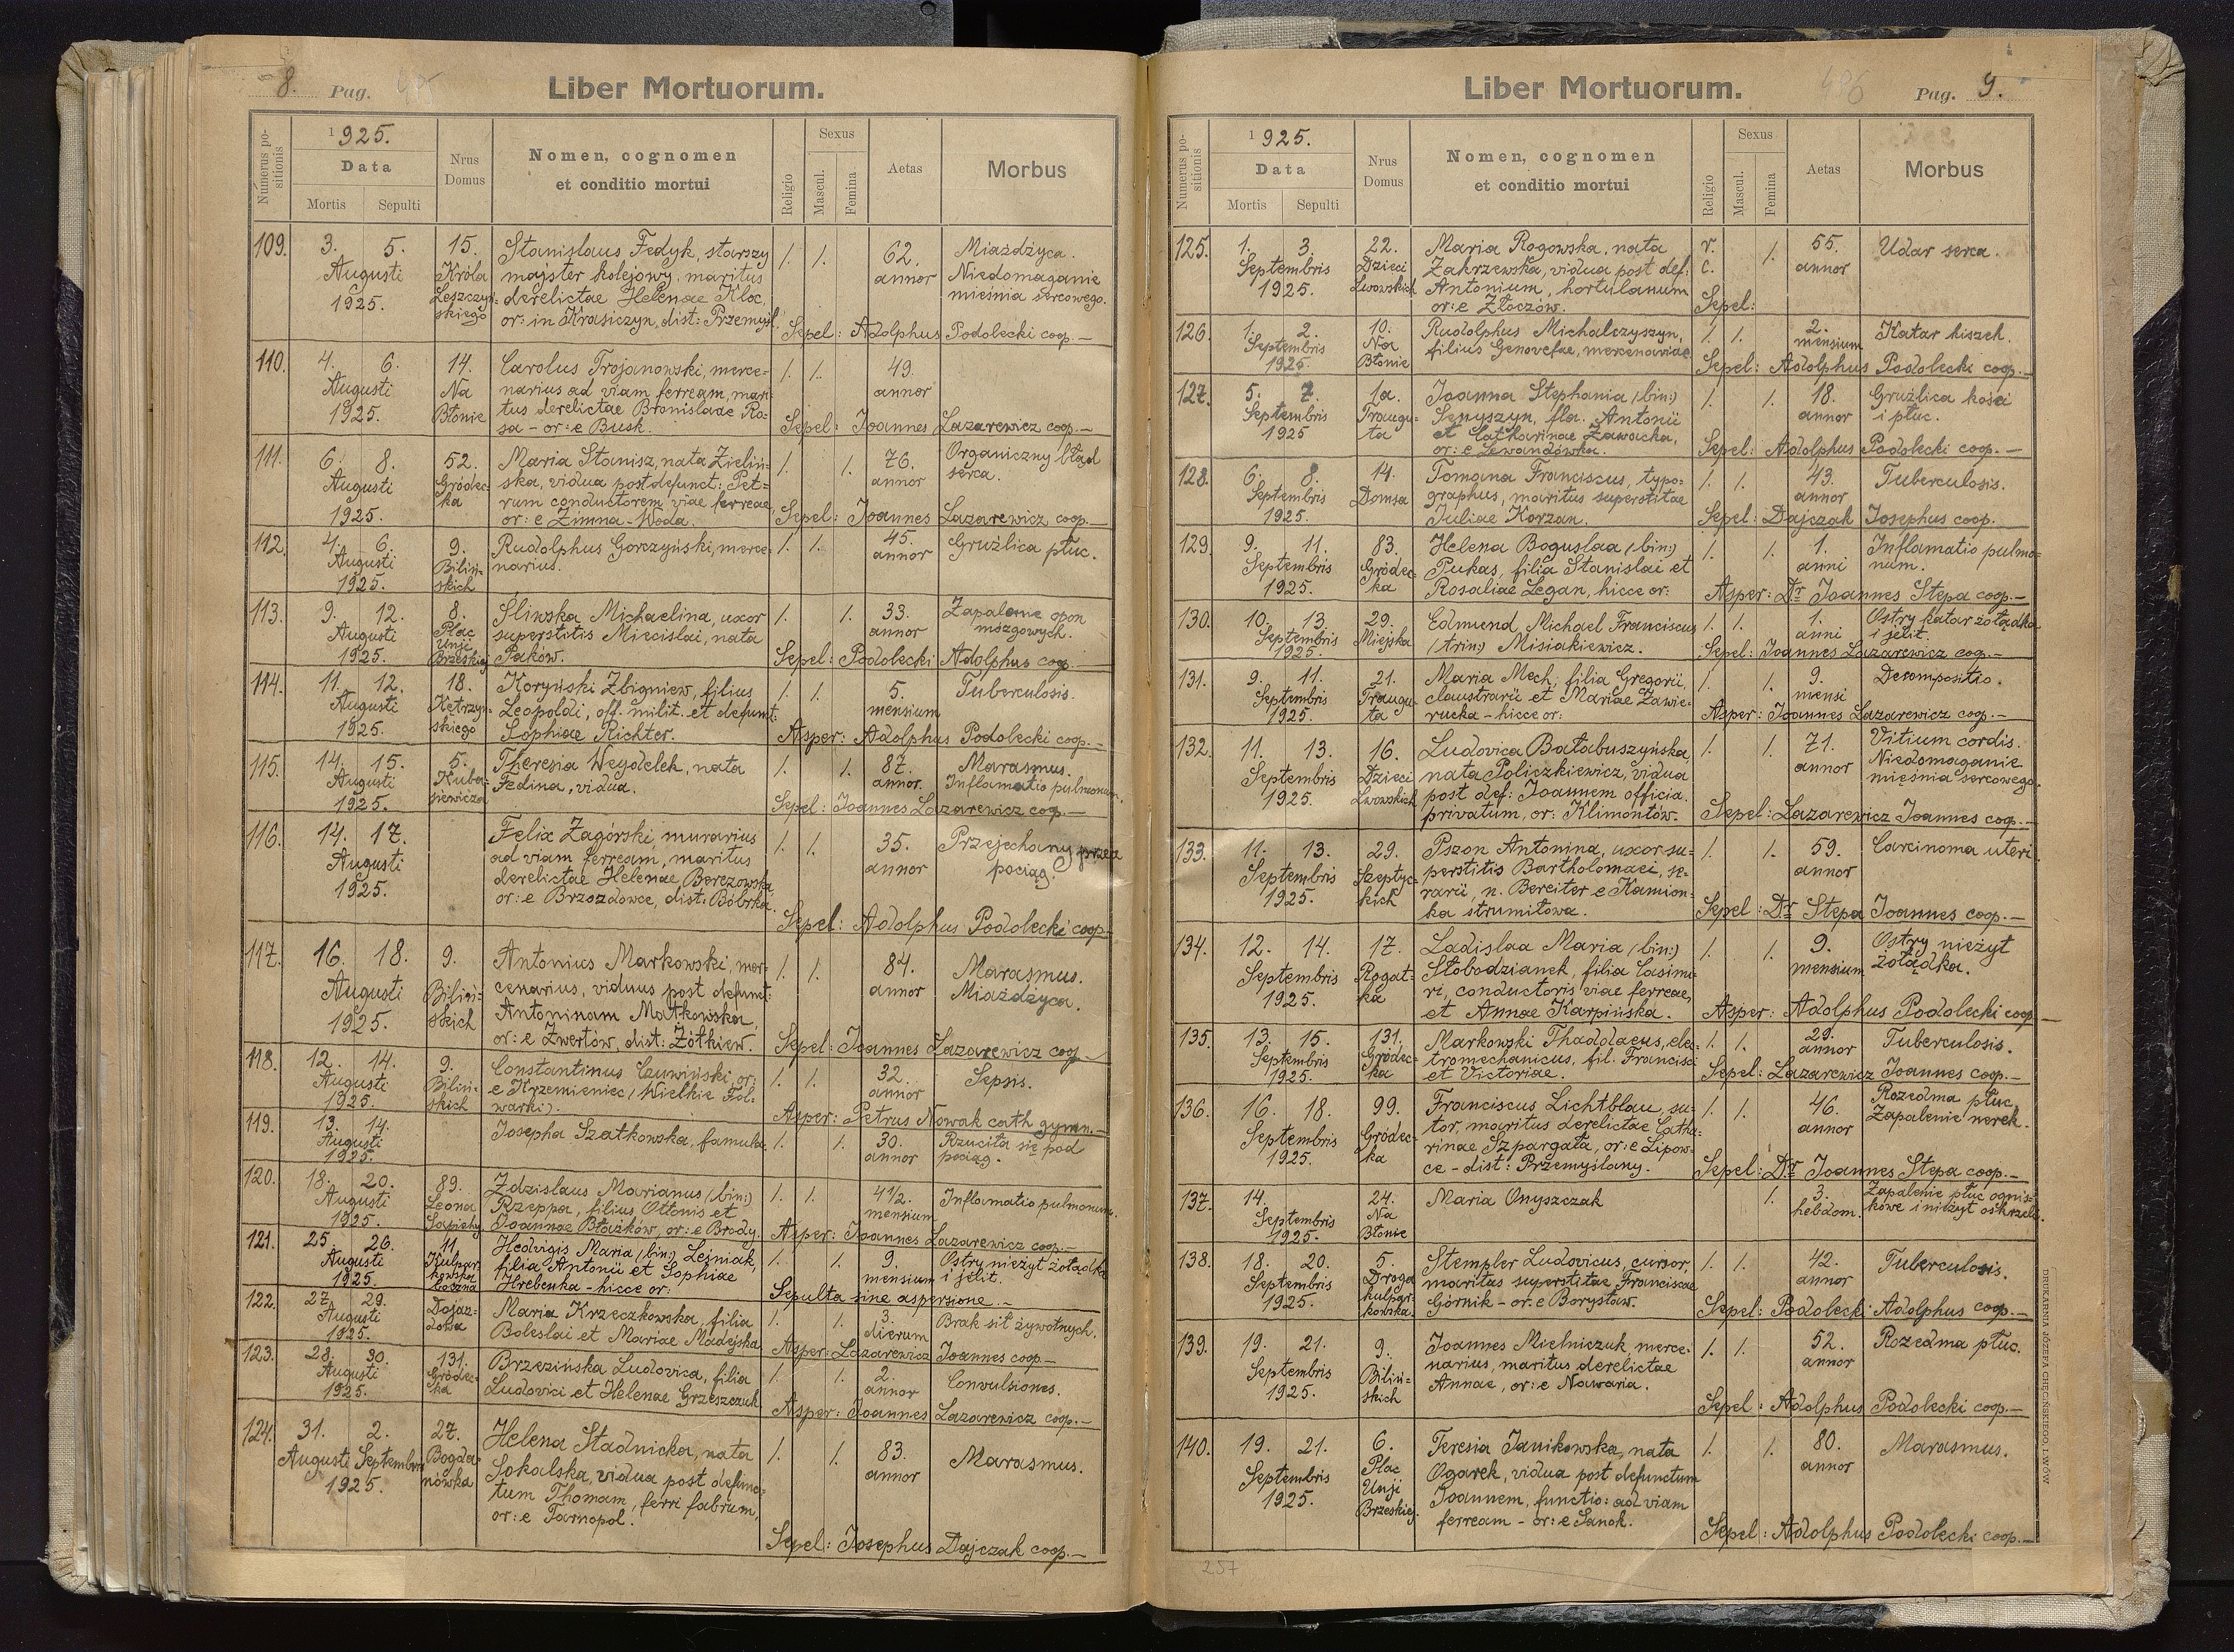 8. Pag. 485
Liber Mortuorum.
Numerus positionis
1925.
Data
Mortis Sepulti
Nrus Domus
Nomen, cognomen
et conditio mortui
Religio
Sexus
Mascul.
Femina
Aetas
Morbus
109. 3. 5. 15. Stanislaus Fedyk, starszy 1. 1. 62. Miażdżyca.
Augusti Króla majster kolejowy, maritus annor Niedomaganie
1925. Leszczyń- derelictae Helenae Kloc, mieśnia sercowego.
skiego or: in Krasiczyn, dist: Przemyśl. Sepel: Adolphus Podolecki coop.—
110. 4. 6. 14. Carolus Trojanowski, merce= 1. 1. 49.
Augusti Na narius ad viam ferream, mari= annor
1925. Błonie tus derelictae Bronislaae Ro=
sa - or: e Busk. Sepel: Joannes Lazarewicz coop.—
111. 6. 8. 52. Maria Stanisz, nata Zieliń= 1. 1. 76. Organiczny błąd
Augusti Gródec= ska, vidua post defunct: Pet= annor serca.
1925. ka rum conductorem viae ferreae,
or: e Zimna-Woda. Sepel: Joannes Lazarewicz coop.—
112. 4. 6. 9. Rudolphus Gorczyński, merce= 1. 1. 45. Gruźlica płuc.
Augusti Biliń= narius. annor
1925. skich
113. 9. 12. 8. Śliwska Michaelina, uxor 1. 1. 33. Zapalenie opon
Augusti Plac superstitis Miecislai, nata annor mózgowych.
1925. Unji Brzeskiej Paków. Sepel: Podolecki Adolphus coop.—
114. 11. 12. 18. Koryński Zbigniew, filius 1. 1. 5. Tuberculosis.
Augusti Kętrzyń- Leopoldi, off. milit. et defunt: mensium
1925. skiego Sophiae Richter. Asper: Adolphus Podolecki coop.—
115. 14. 15. 5. Theresia Weydelek, nata 1. 1. 87. Marasmus.
Augusti Kuba= Fedina, vidua. annor. Inflamatio pulmonum.
1925. siewicza Sepel: Joannes Lazarewicz coop.—
116. 14. 17. Felix Zagórski, murarius 1. 1. 35. Przejechany przez
Augusti ad viam ferream, maritus annor pociąg.
1925. derelictae Helenae Berezowska,
or: e Brzozdowce, dist: Bóbrka. Sepel: Adolphus Podolecki coop.
117. 16. 18. 9. Antonius Markowski, mer= 1. 1. 84. Marasmus.
Augusti Biliń= cenarius, viduus post defunct: annor Miażdżyca.
1925. skich Antoninam Matkowska,
or: e Zwertów, dist: Żółkiew. Sepel: Joannes Lazarewicz coop.—
118. 12. 14. 9. Constantinus Czuwiński or: 1. 1. 32. Sepsis.
Augusti Biliń= e Krzemieniec (Wielkie Fol= annor
1925. skich warki). Asper: Petrus Nowak cath gymn.—
119. 13. 14. Josepha Szatkowska, famula. 1. 1. 30. Rzuciła się pod
Augusti annor pociąg.
1925.
120. 18. 20. 89. Zdzislaus Marianus (bin:) 1. 1. 4½. Inflamatio pulmonum.
Augusti Leona Rzeppa, filius Ottonis et mensium
1925. Sapiehy Joannae Błażków, or: e Brody. Asper: Joannes Lazarewicz coop.—
121. 25. 26. 11. Hedvigis Maria (bin:) Leśniak, 1. 1. 9. Ostry nieżyt żołądka
Augusti Kulpar- filia Antonii et Sophiae mensium i jelit.
1925. kowska boczna Hrebenka - hicce or: Sepulta sine aspersione.—
122. 27. 29. Dojaz= Maria Krzeczkowska, filia 1. 1. 3. Brak sił żywotnych.
Augusti dowa Boleslai et Mariae Madejska dierum
1925. Asper: Lazarewicz Joannes coop—
123. 28. 30. 131. Brzezińska Ludovica, filia 1. 1. 2. Convulsiones.
Augusti Gródec= Ludovici et Helenae Grzeszczuk annor
1925. ka Asper: Joannes Lazarewicz coop.—
124. 31. 2. 27. Helena Stadnicka, nata 1. 1. 83. Marasmus.
Augusti Septembris Bogda= Sokalska, vidua post defunc= annor
1925. nówka tum Thomam, ferri fabrum,
or: e Tarnopol.
Sepel: Josephus Dajczak coop.—
Liber Mortuorum.
486 Pag. 9.
Numerus positionis
1925.
Data
Mortis Sepulti
Nrus Domus
Nomen, cognomen
et conditio mortui
Religio
Sexus
Mascul.
Femina
Aetas
Morbus
125. 1. 3. 22. Maria Rogowska, nata r. 1. 55. Udar serca.
Septembris Dzieci Zakrzewska, vidua post def: c. annor
1925. Lwowskich Antonium, hortulanum
or: e Złoczów. Sepel:
126. 1. 2. 10. Rudolphus Michalczyszyn, 1. 1. 2. Katar kiszek.
Septembris Na filius Genovefae, mercenariae mensium
1925. Błonie Sepel: Adolphus Podolecki coop.—
127. 5. 7. 1a. Joanna Stephania (bin:) 1. 1. 18. Gruźlica kości
Septembris Traugu= Senyszyn, fla. Antonii annor i płuc.
1925 ta et Catharinae Zawacka,
or: e Lewandówka. Sepel: Adolphus Podolecki coop.—
128. 6. 8. 14. Tomana Franciscus, typo= 1. 1. 43. Tuberculosis.
Septembris Domsa graphus, maritus superstitae annor
1925. Juliae Korzan. Sepel: Dajczak Josephus coop.
129. 9. 11. 83. Helena Boguslaa (bin:) 1. 1. 1. Inflamatio pulmo=
Septembris Gródec= Pukas, filia Stanislai et anni num.
1925. ka Rosaliae Legan, hicce or: Asper: Dr Joannes Stepa coop.—
130. 10. 13. 29. Edmund Michael Franciscus 1. 1. 1. Ostry katar żołądka
Septembris Miejska (trin:) Misiakiewicz. anni i jelit.
1925. Sepel: Joannes Lazarewicz coop.—
131. 9. 11. 21. Maria Mech, filia Gregorii, 1. 1. 9. Decompositio.
Septembris Traugu= claustrarii et Mariae Zawie= mensi
1925. ta rucka - hicce or: Asper: Joannes Lazarewicz coop.—
132. 11. 13. 16. Ludovica Bałabuszyńska, 1. 1. 71. Vitium cordis.
Septembris Dzieci nata Policzkiewicz, vidua annor Niedomaganie
1925. Lwowskich post def: Joannem officia. mięśnia sercowego.
privatum, or: Klimontów. Sepel: Lazarewicz Joannes coop.—
133. 11. 13. 29. Pszon Antonina, uxor su= 1. 1. 59. Carcinoma uteri.
Septembris Szeptyc= perstitis Bartholomaei, se= annor
1925. kich rarii, n. Bereiter e Kamion=
ka strumiłowa. Sepel: Dr Stepa Joannes coop.—
134. 12. 14. 17. Ladislaa Maria (bin:) 1. 1. 9. Ostry nieżyt
Septembris Rogat= Słobodzianek, filia Casimi= mensium żołądka.
1925. ka ri, conductoris viae ferreae,
et Annae Karpińska. Asper: Adolphus Podolecki coop—
135. 13. 15. 131. Markowski Thaddaeus, ele= 1. 1. 29. Tuberculosis.
Septembris Gródec= tromechanicus, fil. Francisci annor
1925. ka et Victoriae. Sepel: Lazarewicz Joannes coop.—
136. 16. 18. 99. Franciscus Lichtblau, su= 1. 1. 46. Rozedma płuc.
Septembris Gródec= tor, maritus derelictae Catha= annor Zapalenie nerek.
1925. ka rinae Szpargała, or: e Lipow=
ce - dist: Przemyślany. Sepel: Dr Joannes Stepa coop.—
137. 14. 24. Maria Onyszczak 1. 3. Zapalenie płuc ognis=
Septembris Na hebdom. kowe i nieżyt oskrzeli.
1925. Błonie
138. 18. 20. 5. Stempler Ludovicus, cursor, 1. 1. 42. Tuberculosis.
Septembris Droga maritus superstitae Franciscae annor
1925. kulpar= kowska Górnik - or: e Borysław. Sepel: Podolecki Adolphus coop.—
139. 19. 21. 9. Joannes Mielniczuk, merce= 1. 1. 52. Rozedma płuc.
Septembris Biliń= narius, maritus derelictae annor
1925. skich Annae, or: e Nawaria.
Sepel: Adolphus Podolecki coop.—
140. 19. 21. 6. Teresia Janikowska, nata 1. 1. 80. Marasmus.
Septembris Plac Ogarek, vidua post defunctum annor
1925. Unji Joannem, functio: ad viam
Brzeskiej. ferream - or: e Sanok. Sepel: Adolphus Podolecki coop.—
257
DRUKARNIA JÓZEFA CHĘCIŃSKIEGO, LWÓW